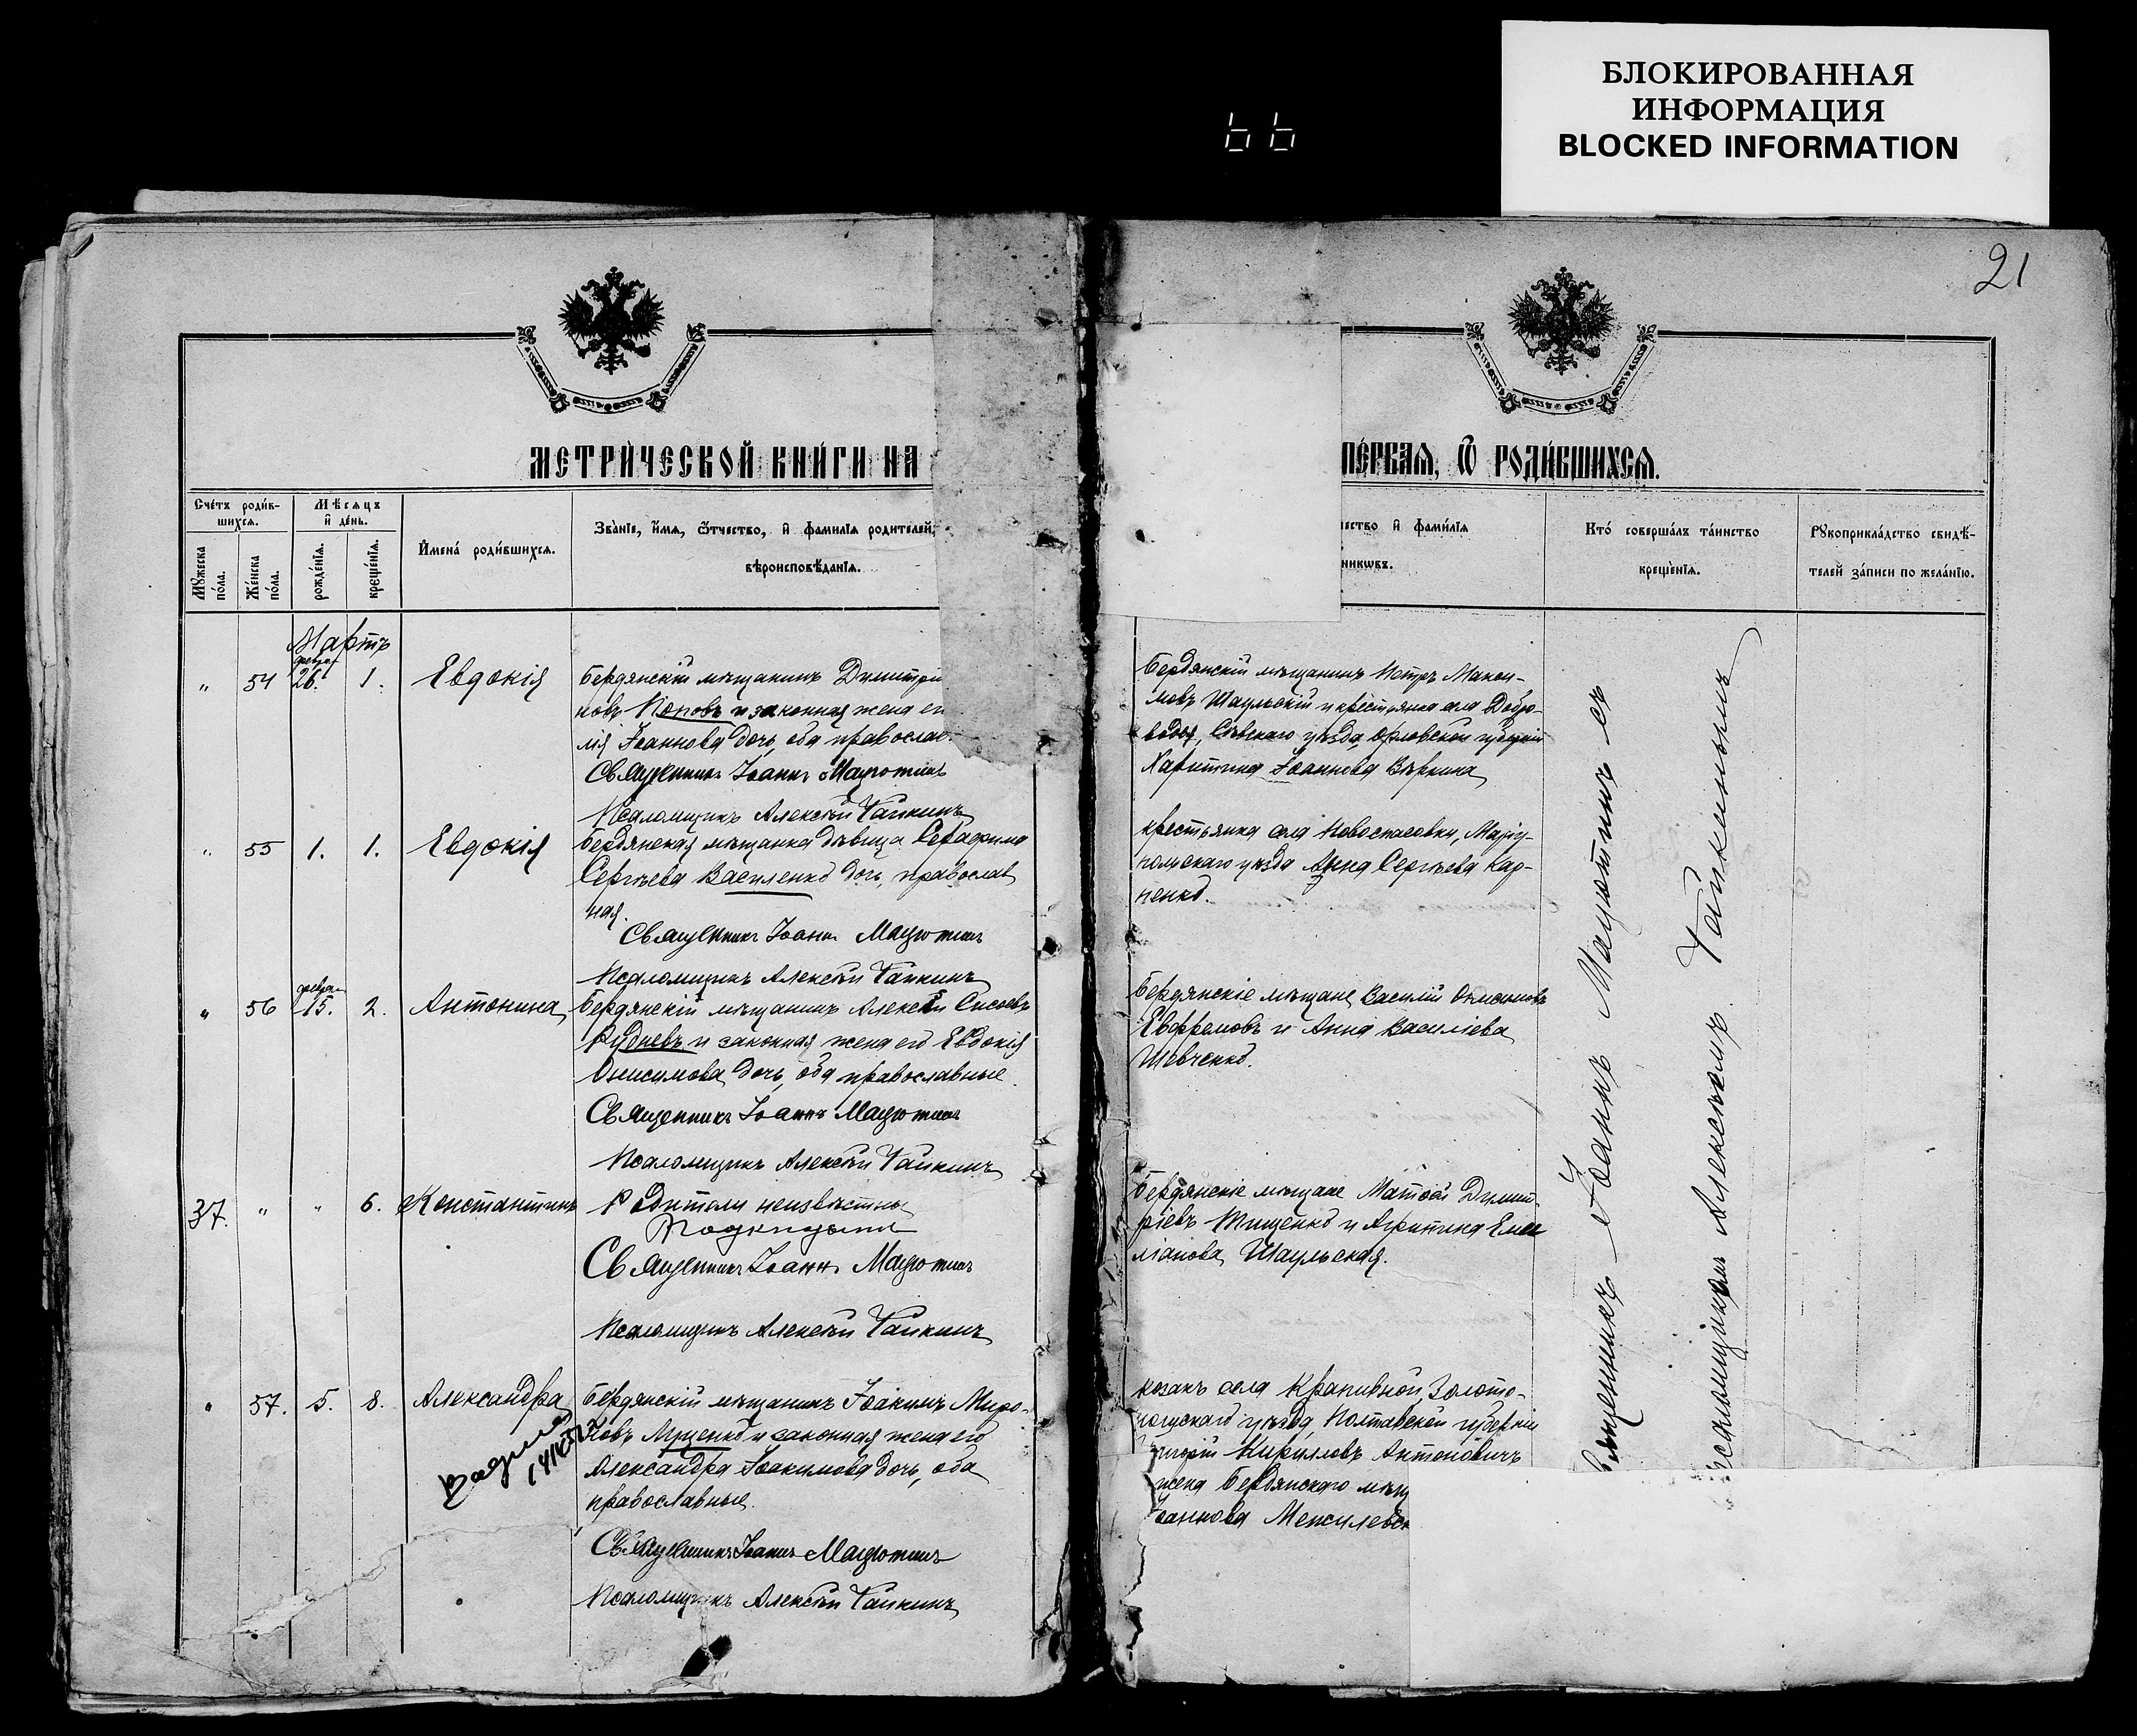 БЛОКИРОВАННАЯ
ИНФОРМАЦИЯ
BLOCKED INFORMATION
66
21
МЕТРИ́ЧЕСКОЙ КНИ́ГИ НА
ПЕ́РВАѦ, Ѡ҃ РОДИ́ВШИХСѦ.
Сче́тъ роди́в-
шихсѧ.
Мѣ́сѧцъ
и҆ де́нь.
Мꙋ́жеска
по́ла.
Же́нска
по́ла.
рожде́нїѧ.
креще́нїѧ.
И҆мена̀ роди́вшихсѧ.
Зва́нїе, и҆́мѧ, ѻ҆́тчество, и҆ фами́лїѧ роди́телей,
вѣроисповѣ́данїѧ.
чество и҆ фами́лїѧ
никѡвъ.
Кто̀ соверша́лъ та́инство
креще́нїѧ.
Рꙋкоприкла́дство свидѣ́-
телей за́писи по жела́нїю.
Мартъ
феврал
„ 54 26. 1. Евдокія
Бердянскій мѣщанинъ Димитрій
новъ Поповъ и законная жена ег
лія Іоаннова дочь, оба православ
Священникъ Іоаннъ Мацютинъ
Псаломщикъ Алексѣй Чайкинъ
Бердянскій мѣщанинъ Петръ Макси-
мовъ Шаульскій и крестьянка села Добро-
водья, Сѣвскаго уѣзда, Орловской губерніи
Харитина Іоаннова Вѣркина
„ 55 1. 1. Евдокія
Бердянская мѣщанка дѣвица Серафима
Сергѣева Василенко дочь, православ
ная.
Священникъ Іоаннъ Мацютинъ
Псаломщикъ Алексѣй Чайкинъ
крестьянка села Новоспасовки, Маріу-
польскаго уѣзда Анна Сергѣева Кар-
пенко.
феврал
„ 56 15. 2. Антонина
Бердянскій мѣщанинъ Алексѣй Сисоевъ
Рудневъ и законная жена его Евдокія
Онисимова дочь, оба православные.
Священникъ Іоаннъ Мацютинъ
Псаломщикъ Алексѣй Чайкинъ
Бердянскіе мѣщане, Василій
Евфремовъ и Анна Василіева
Шевченко.
37. „ „ 6. Константинъ
Родители неизвѣстны
Священникъ Іоаннъ Мацютинъ
Псаломщикъ Алексѣй Чайкинъ
Бердянскіе мѣщане Матвѣй Димит
ріевъ Тищенко и Агрипина Еме
ліанова Шаульская.
„ 57. 5. 8. Александра
Бердянскій мѣщанинъ Іоакимъ Миро-
новъ Мущенко и законная жена его
Александра Іоакимова дочь, оба
православные.
Священникъ Іоаннъ Мацютинъ
Псаломщикъ Алексѣй Чайкинъ
козакъ села Крапивной, Золото-
ношскаго уѣзда, Полтавской губерніи
горій Кирилловъ Антоновичъ
жена Бердянскаго мѣщ
Іоаннова
Священникъ Іоаннъ Мацютинъ съ
псаломщикомъ Алексѣемъ Чайкинымъ